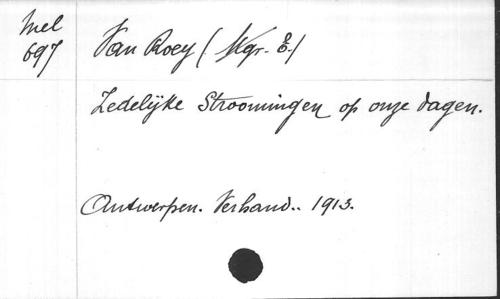 Mel
697
Van Roey (Mgr. E.)
Zedelijke Stroomingen op onze dagen.
Antwerpen. Verhand.. 1913.